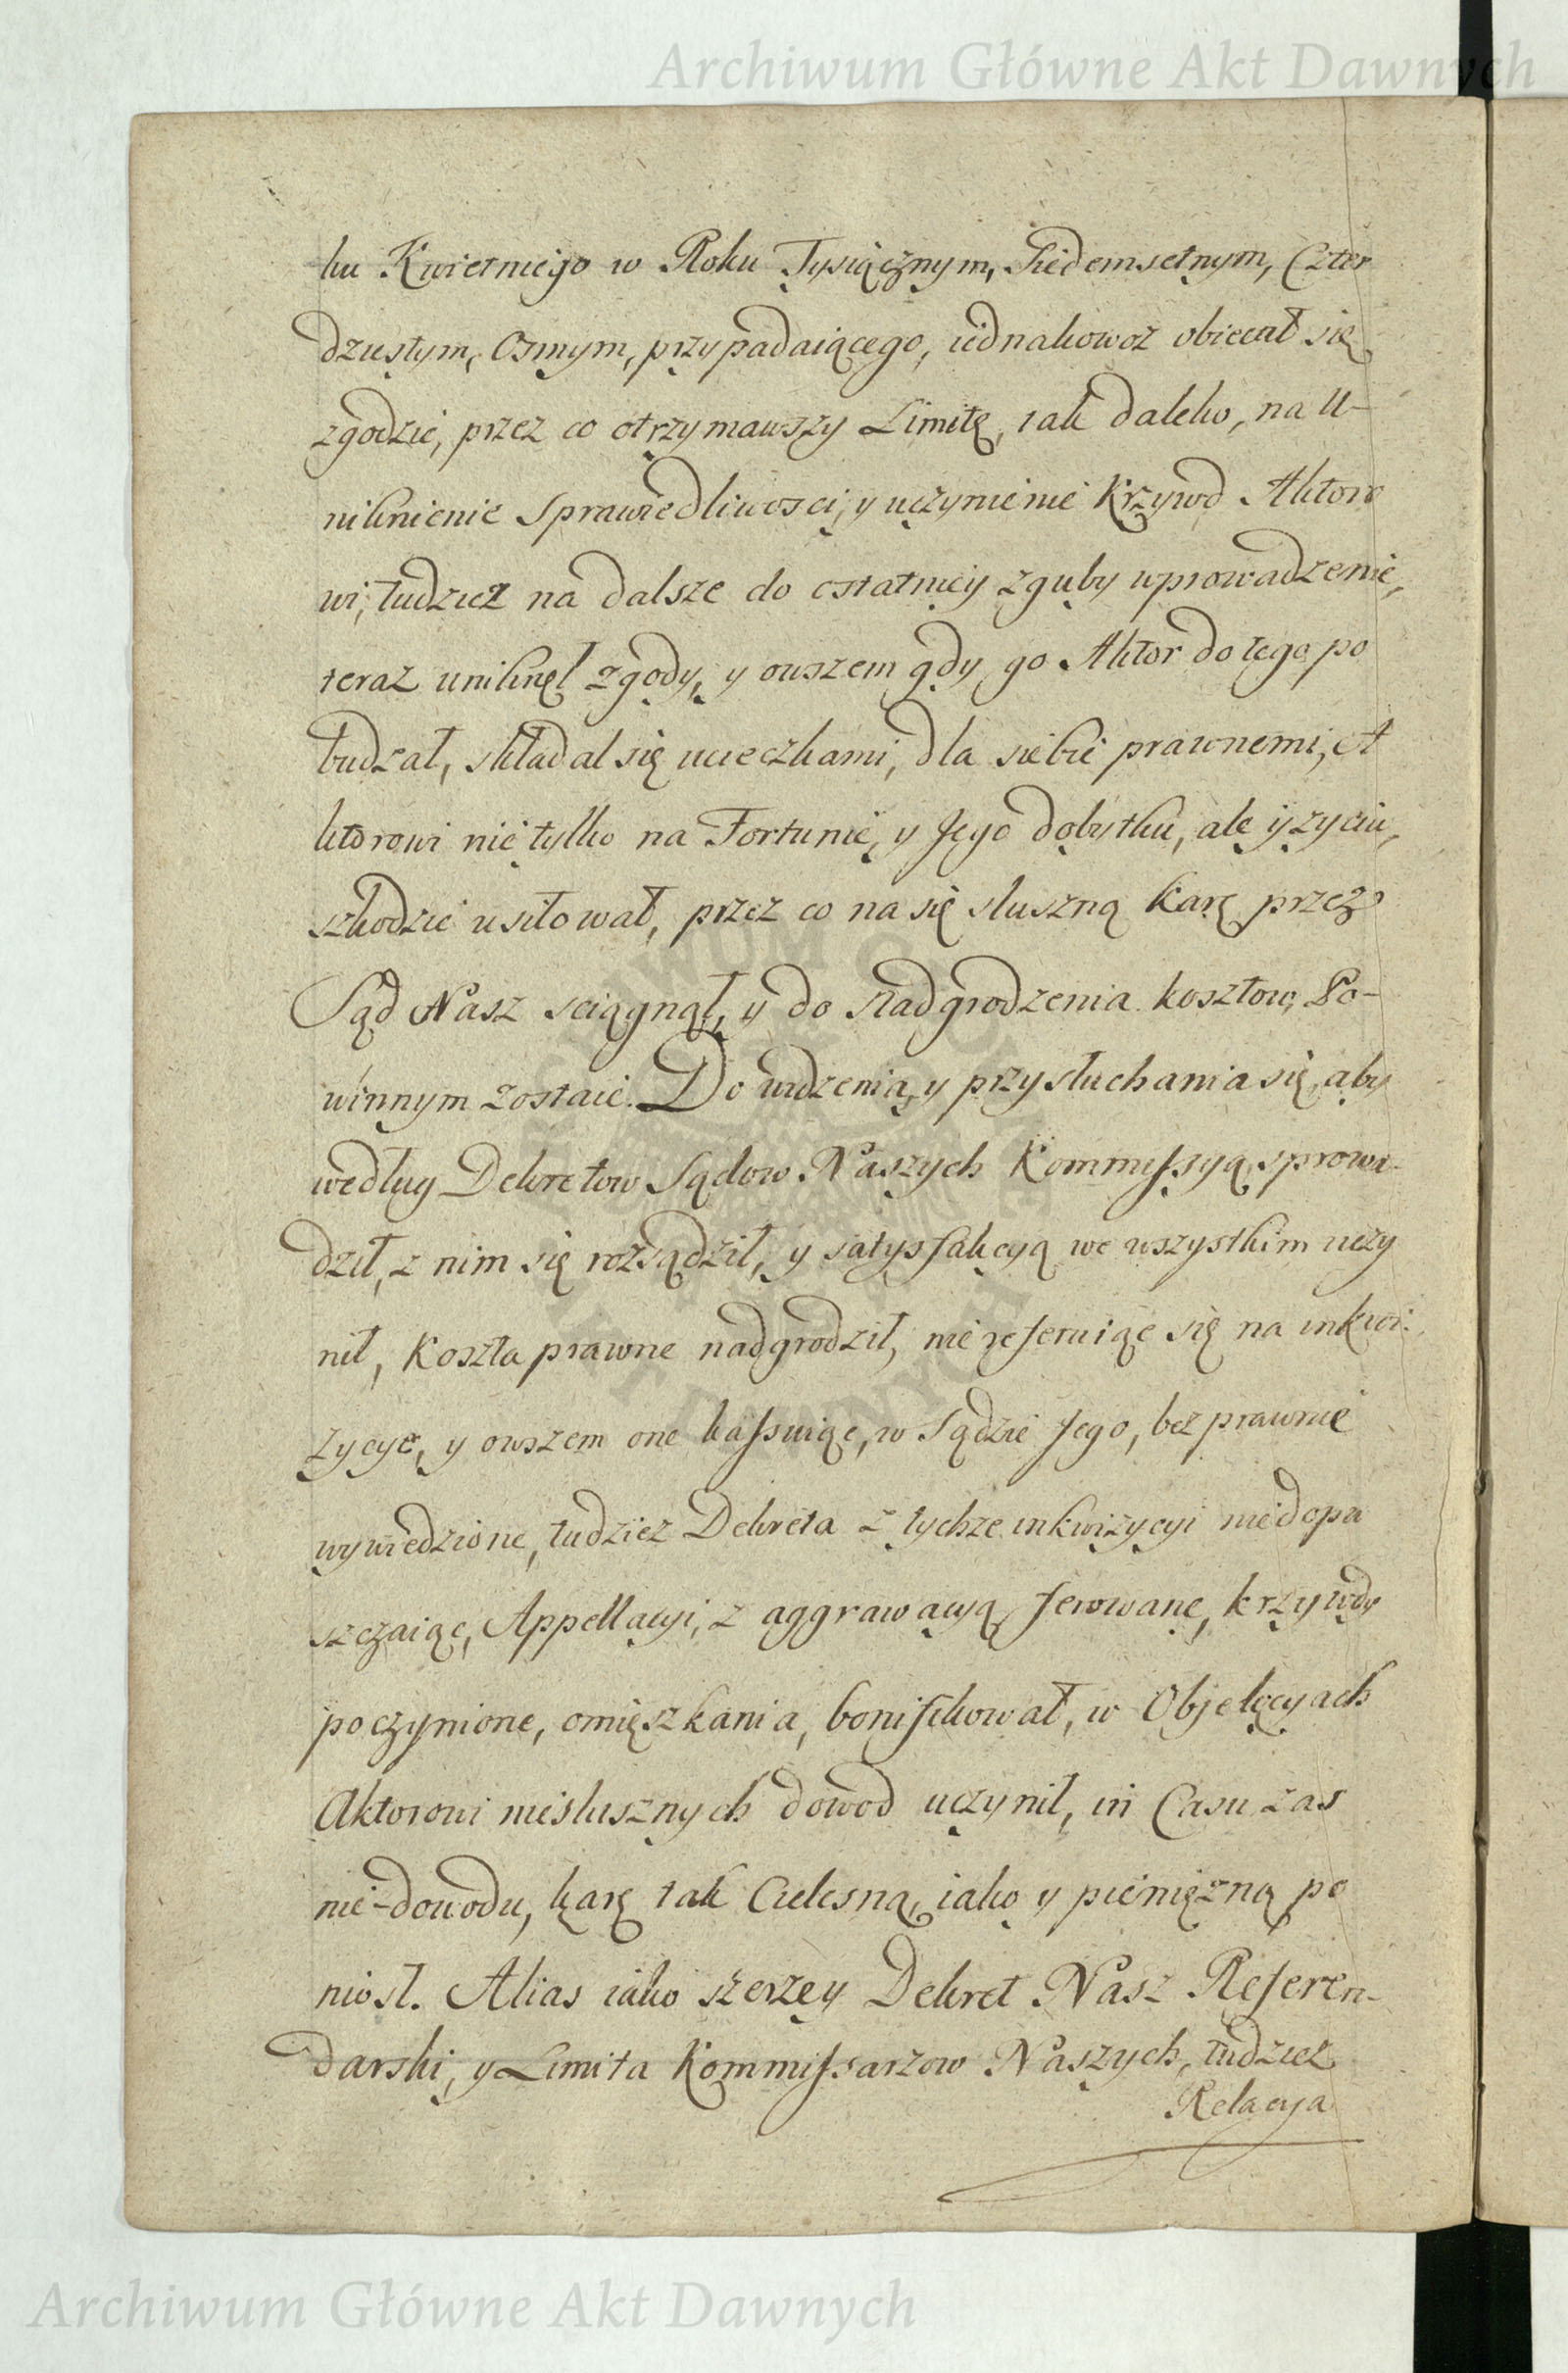 Archiwum Główne Akt Dawnych
ku Kwietniego w Roku Tysiącznym, Siedemsetnym, Czter
dziestym, Osmym, przypadaiącego, iednakowoż obiecał się
zgodzić, przez co otrzymawszy Limitę, iak daleko, na U-
niknienie Sprawiedliwosci, y uczynienie Krzywd Aktoro
wi, tudziez na dalsze do ostatniey zguby wprowadzenie,
teraz uniknęł zgody, y owszem gdy go Aktor do tego po
budzał, składał się ucieczkami, dla siebie prawnemi, A
ktorowi nie tylko na Fortunie, y Jego dobytku, ale y zyciu,
szkodzić usiłował, przez co na się słuszną karę przez
Sąd Nasz sciągnął, y do nadgrodzenia kosztow, Po-
winnym zostaie. Do widzenia, y przysłuchania się, aby
według Dekretow Sądow Naszych Kommissyą sprowa-
dził, z nim się rozsądził, y satysfakcyą we wszystkim uczy
nił, Koszta prawne nadgrodził, nie referuiąc się na inkwi-
zycye, y owszem one kassuiąc, w Sądzie Jego, bezprawnie
wywiedzione, tudziez Dekreta z tychze inkwizycyi niedopu
szczaiąc, Appellacyi, z aggrawacyą ferowane, krzywdy
poczynione, omięszkania, bonifikował, w Objekcyach
Aktorowi niesłusznych dowod uczynił, in Casu zas
nie-dowodu, karę tak Cielesną, iako y pieniężną po
niosł. Alias iako szerzey Dekret Nasz Referen-
darski, y Limita Kommissarzow Naszych, tudziez
Relacya
Archiwum Główne Akt Dawnych